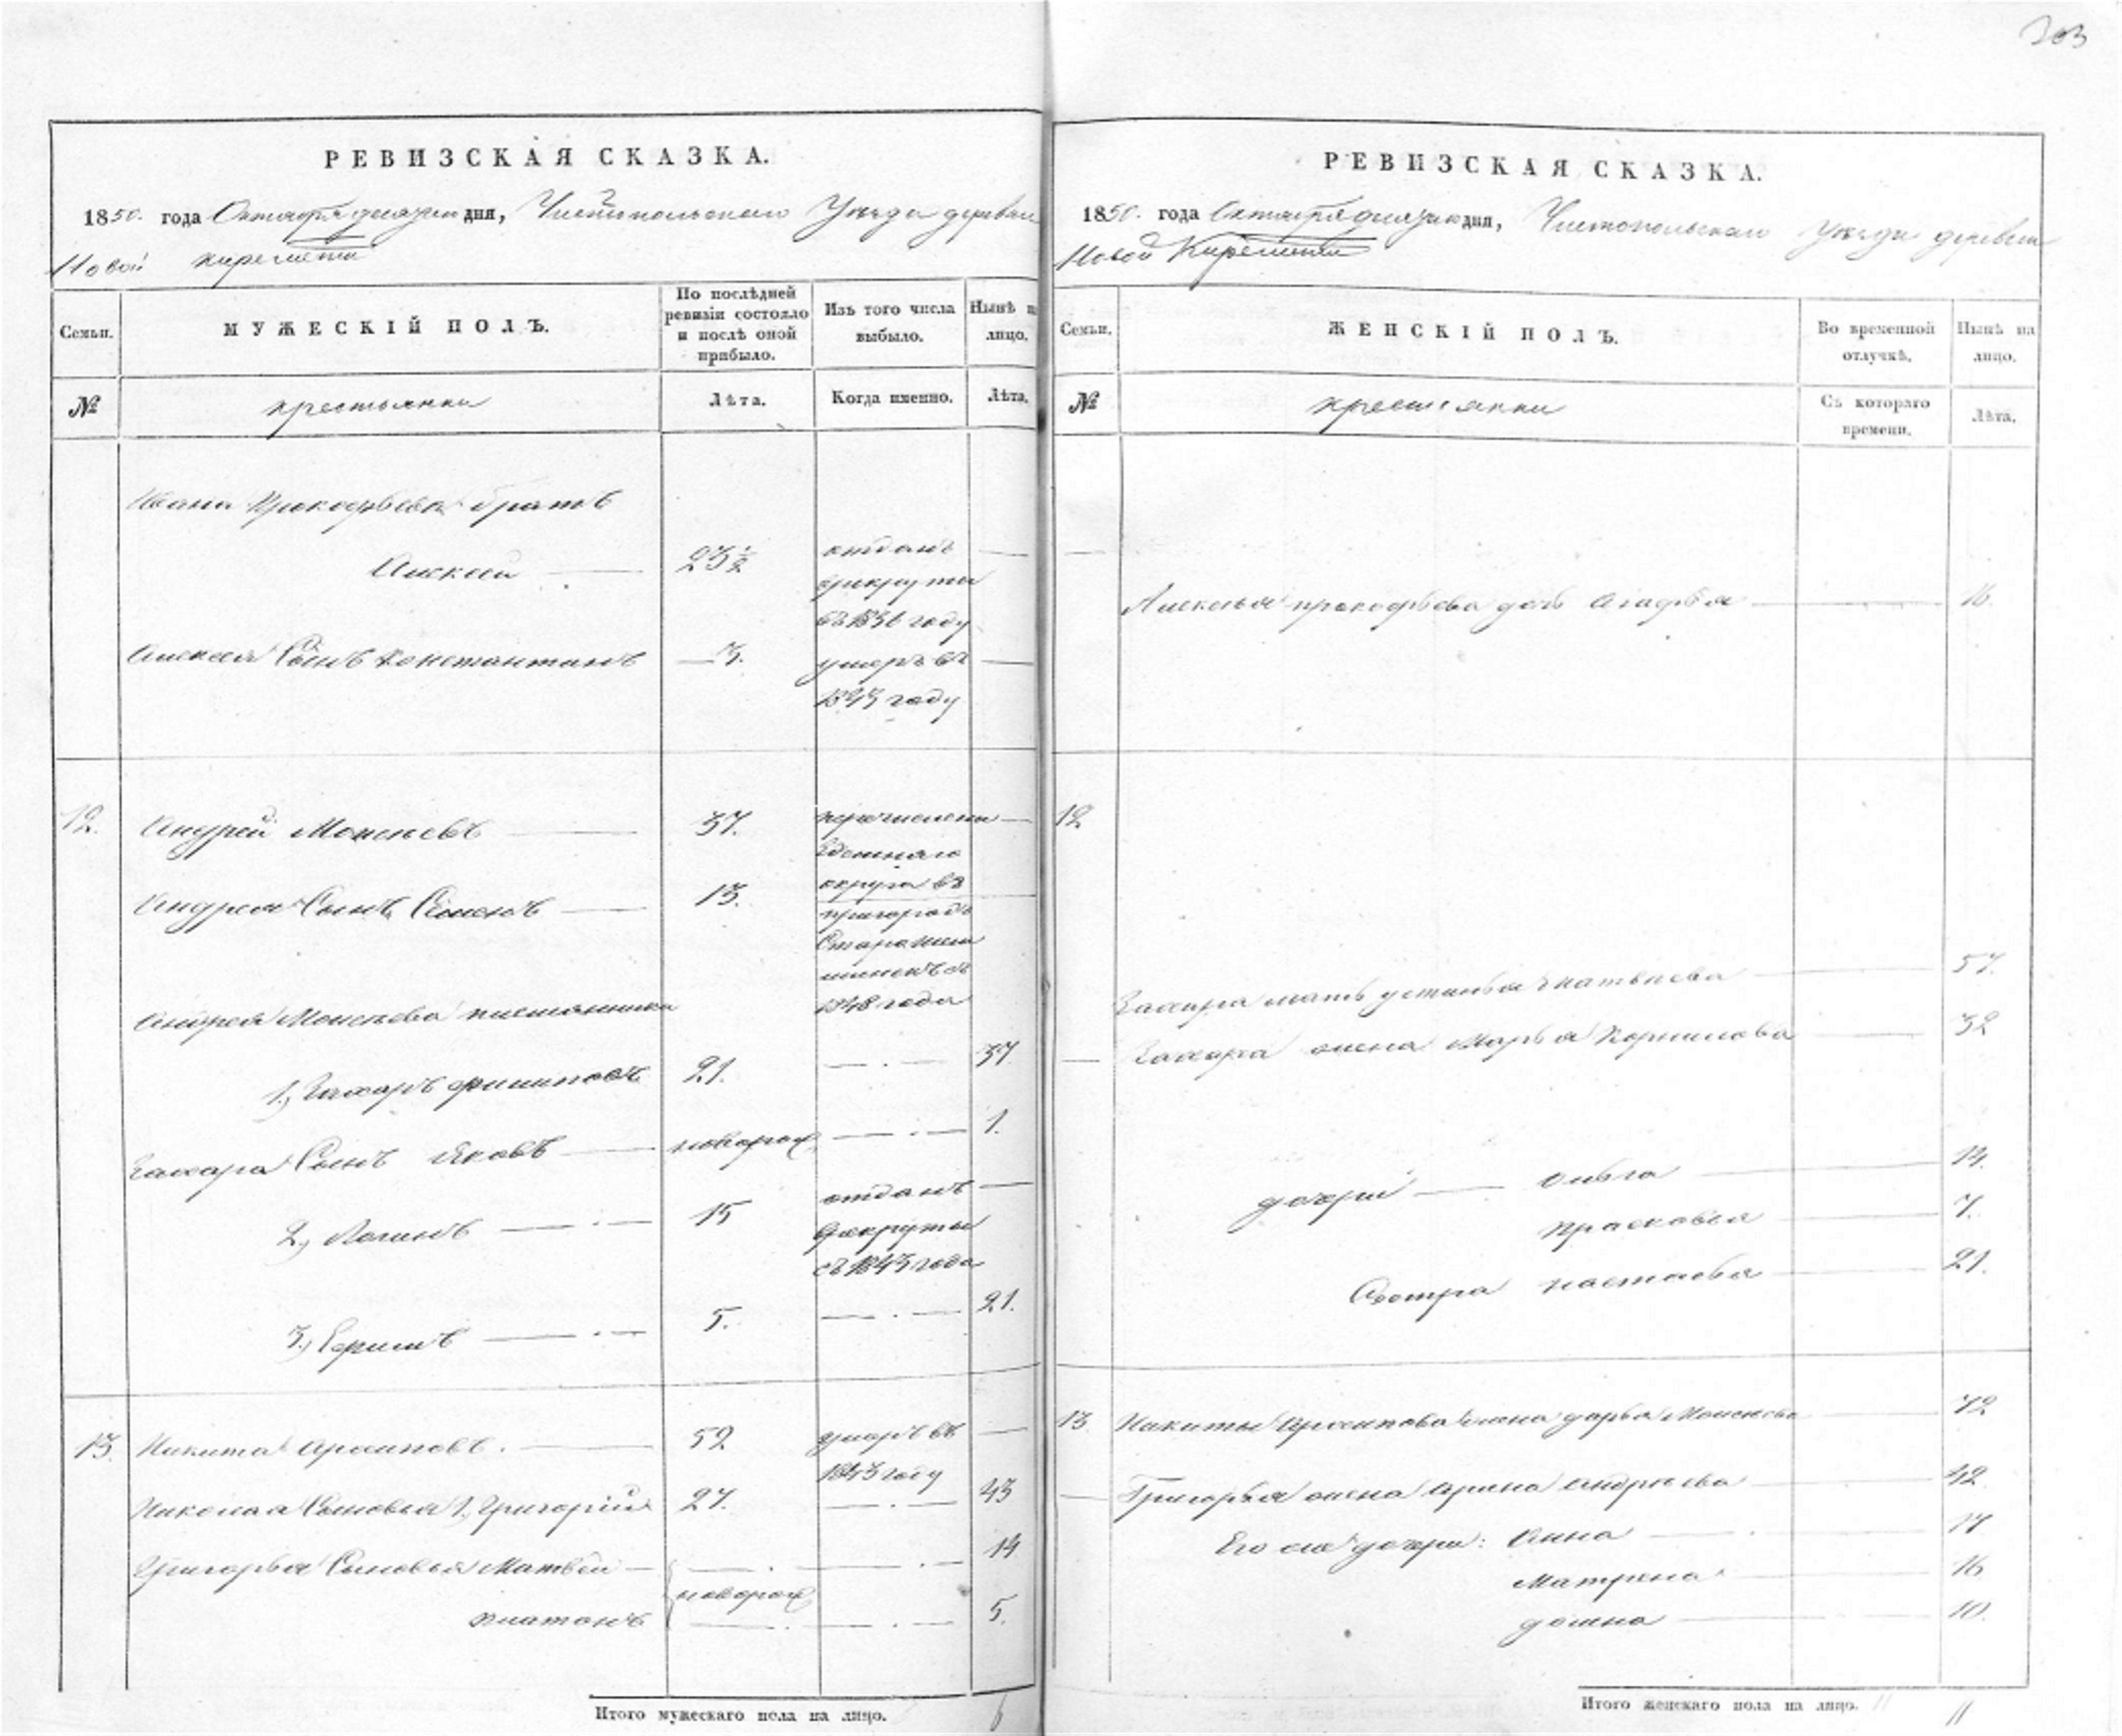 303
РЕВИЗСКАЯ СКАЗКА.
1850. года Октября дня, Чистопольскаго Уезда деревни
Новой Киремети
Семьи.
МУЖЕСКІЙ ПОЛЪ.
По послѣдней ревизіи состояло и послѣ оной прибыло.
Изъ того числа выбыло.
Нынѣ на лицо.
№
крестьянъ
Лѣта.
Когда именно.
Лѣта.
Ивана Прокофьева братъ
Алексей 23½ отданъ
врекруты
въ 1836 году
Алексея Сынъ Константинъ 3. умеръ въ
1843 году
12. Андрей Моисеевъ 37. перечислены
здешняго
Андрея Сынъ Семенъ 13. округа въ
пригородъ
Старошеш
минскъ съ
1848 года
Андрея Моисеева племянники
1, Захаръ Филиповъ 21. 37
Захара Сынъ Яковъ новорож. 1.
2, Логинъ 15 отданъ
врекруты
съ 1843 года
3, Ефимъ 5. 21.
13. Никита Архиповъ. 52 умеръ въ
1843 году
Николая Сыновья 1, Григорій 27. 43
Григорья Сыновья Матвей 14
новорож
Платонъ 5.
Итого мужескаго пола на лицо. 6
РЕВИЗСКАЯ СКАЗКА.
1850. года Октября дня, Чистопольскаго Уезда деревни
Новой Киремети
Семьи.
ЖЕНСКІЙ ПОЛЪ.
Во временной отлучкѣ.
Нынѣ на лицо.
№
крестьянки
Съ котораго времени.
Лѣта.
Алексея Прокофьева дочь Агафья 16.
12
Захара мать Устинья Матвеева 57.
Захара жена Марья Корнилова 32
дочери Ольга 14.
Прасковья 7.
Сестра Настасья 21.
13. Никиты Архипова жена Дарья Моисеева 72
Григорья жена Арина Андреева 42
Его же дочери: Анна 17
Матрена 16
Домна 10.
Итого женскаго пола на лицо. 11